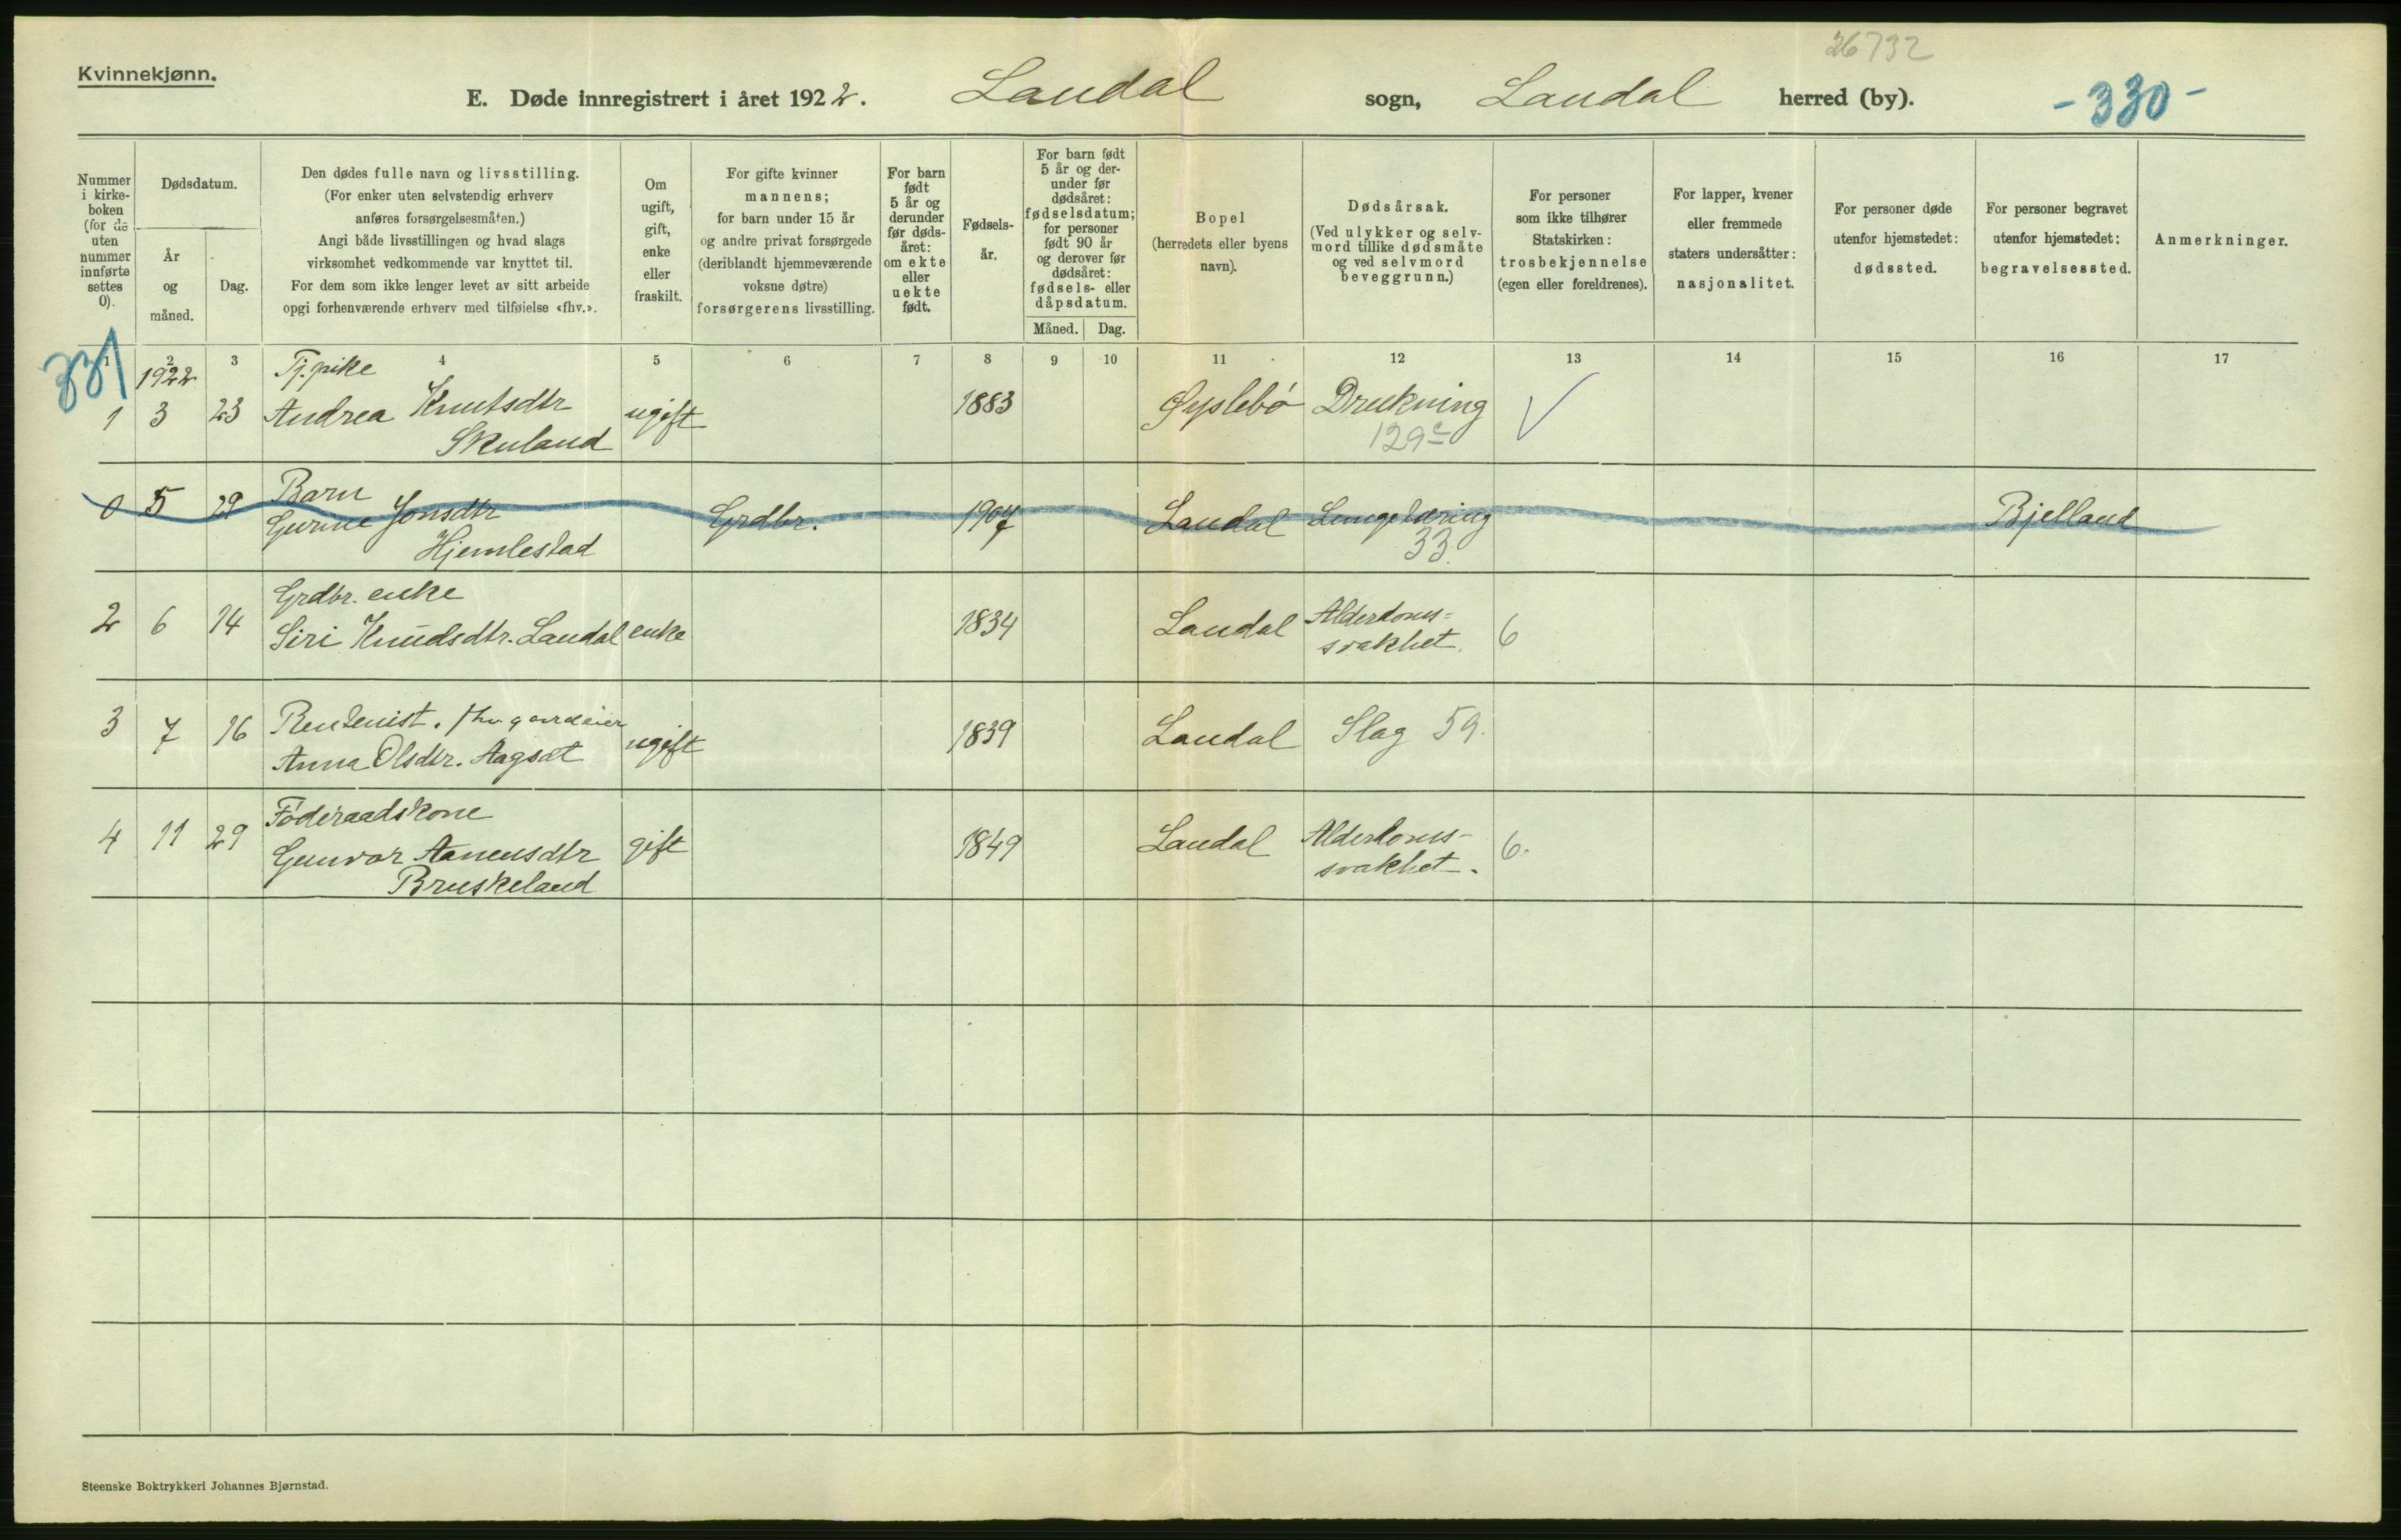 26732
Kvinnekjønn.
E. Døde innregistrert i året 1922. Laudal sogn, Laudal herred (by). -330-
Nummer i kirke-boken (for de uten nummer innførte settes 0).
Dødsdatum.
År og måned.
Dag.
Den dødes fulle navn og livsstilling.
(For enker uten selvstendig erhverv
anføres forsørgelsesmåten.)
Angi både livsstillingen og hvad slags
virksomhet vedkommende var knyttet til.
For dem som ikke lenger levet av sitt arbeide
opgi forhenværende erhverv med tilføielse «fhv.».
Om ugift, gift, enke eller fraskilt.
For gifte kvinner
mannens;
for barn under 15 år
og andre privat forsørgede
(deriblandt hjemmeværende
voksne døtre)
forsørgerens livsstilling.
For barn født 5 år og derunder før døds-året: om ekte eller uekte født.
Fødsels-år.
For barn født
5 år og der-
under før
dødsåret:
fødselsdatum;
for personer
født 90 år
og derover før
dødsåret:
fødsels- eller
dåpsdatum.
Måned. Dag.
Bopel
(herredets eller byens
navn).
Dødsårsak.
(Ved ulykker og selv-
mord tillike dødsmåte
og ved selvmord
beveggrunn.)
For personer
som ikke tilhører
Statskirken:
trosbekjennelse
(egen eller foreldrenes).
For lapper, kvener
eller fremmede
staters undersåtter:
nasjonalitet.
For personer døde
utenfor hjemstedet:
dødssted.
For personer begravet
utenfor hjemstedet:
begravelsessted.
Anmerkninger.
1 2 3 4 5 6 7 8 9 10 11 12 13 14 15 16 17
331
1922 Tj.pike
1 3 23 Andrea Knutsdtr ugift 1883 Øyslebö Drukning
Skuland 129c
Barn
0 5 29 Gurine Jonsdtr Grdbr. 1907 Laudal Lungetæring Bjelland
Hjemlestad 33.
Grdbr. enke
2 6 14 Siri Knudsdtr. Laudal enke 1834 Laudal Alderdoms-
svakhet. 6
3 7 16 Rentenist. fhv gaardeier
Anna Olsdtr. Aagsæt ugift 1839 Laudal Slag 59.
Föderaadskone
4 11 29 Gunvor Aanensdtr gift 1849 Laudal Alderdoms-
Bruskeland svakhet. 6.
Steenske Boktrykkeri Johannes Bjørnstad.